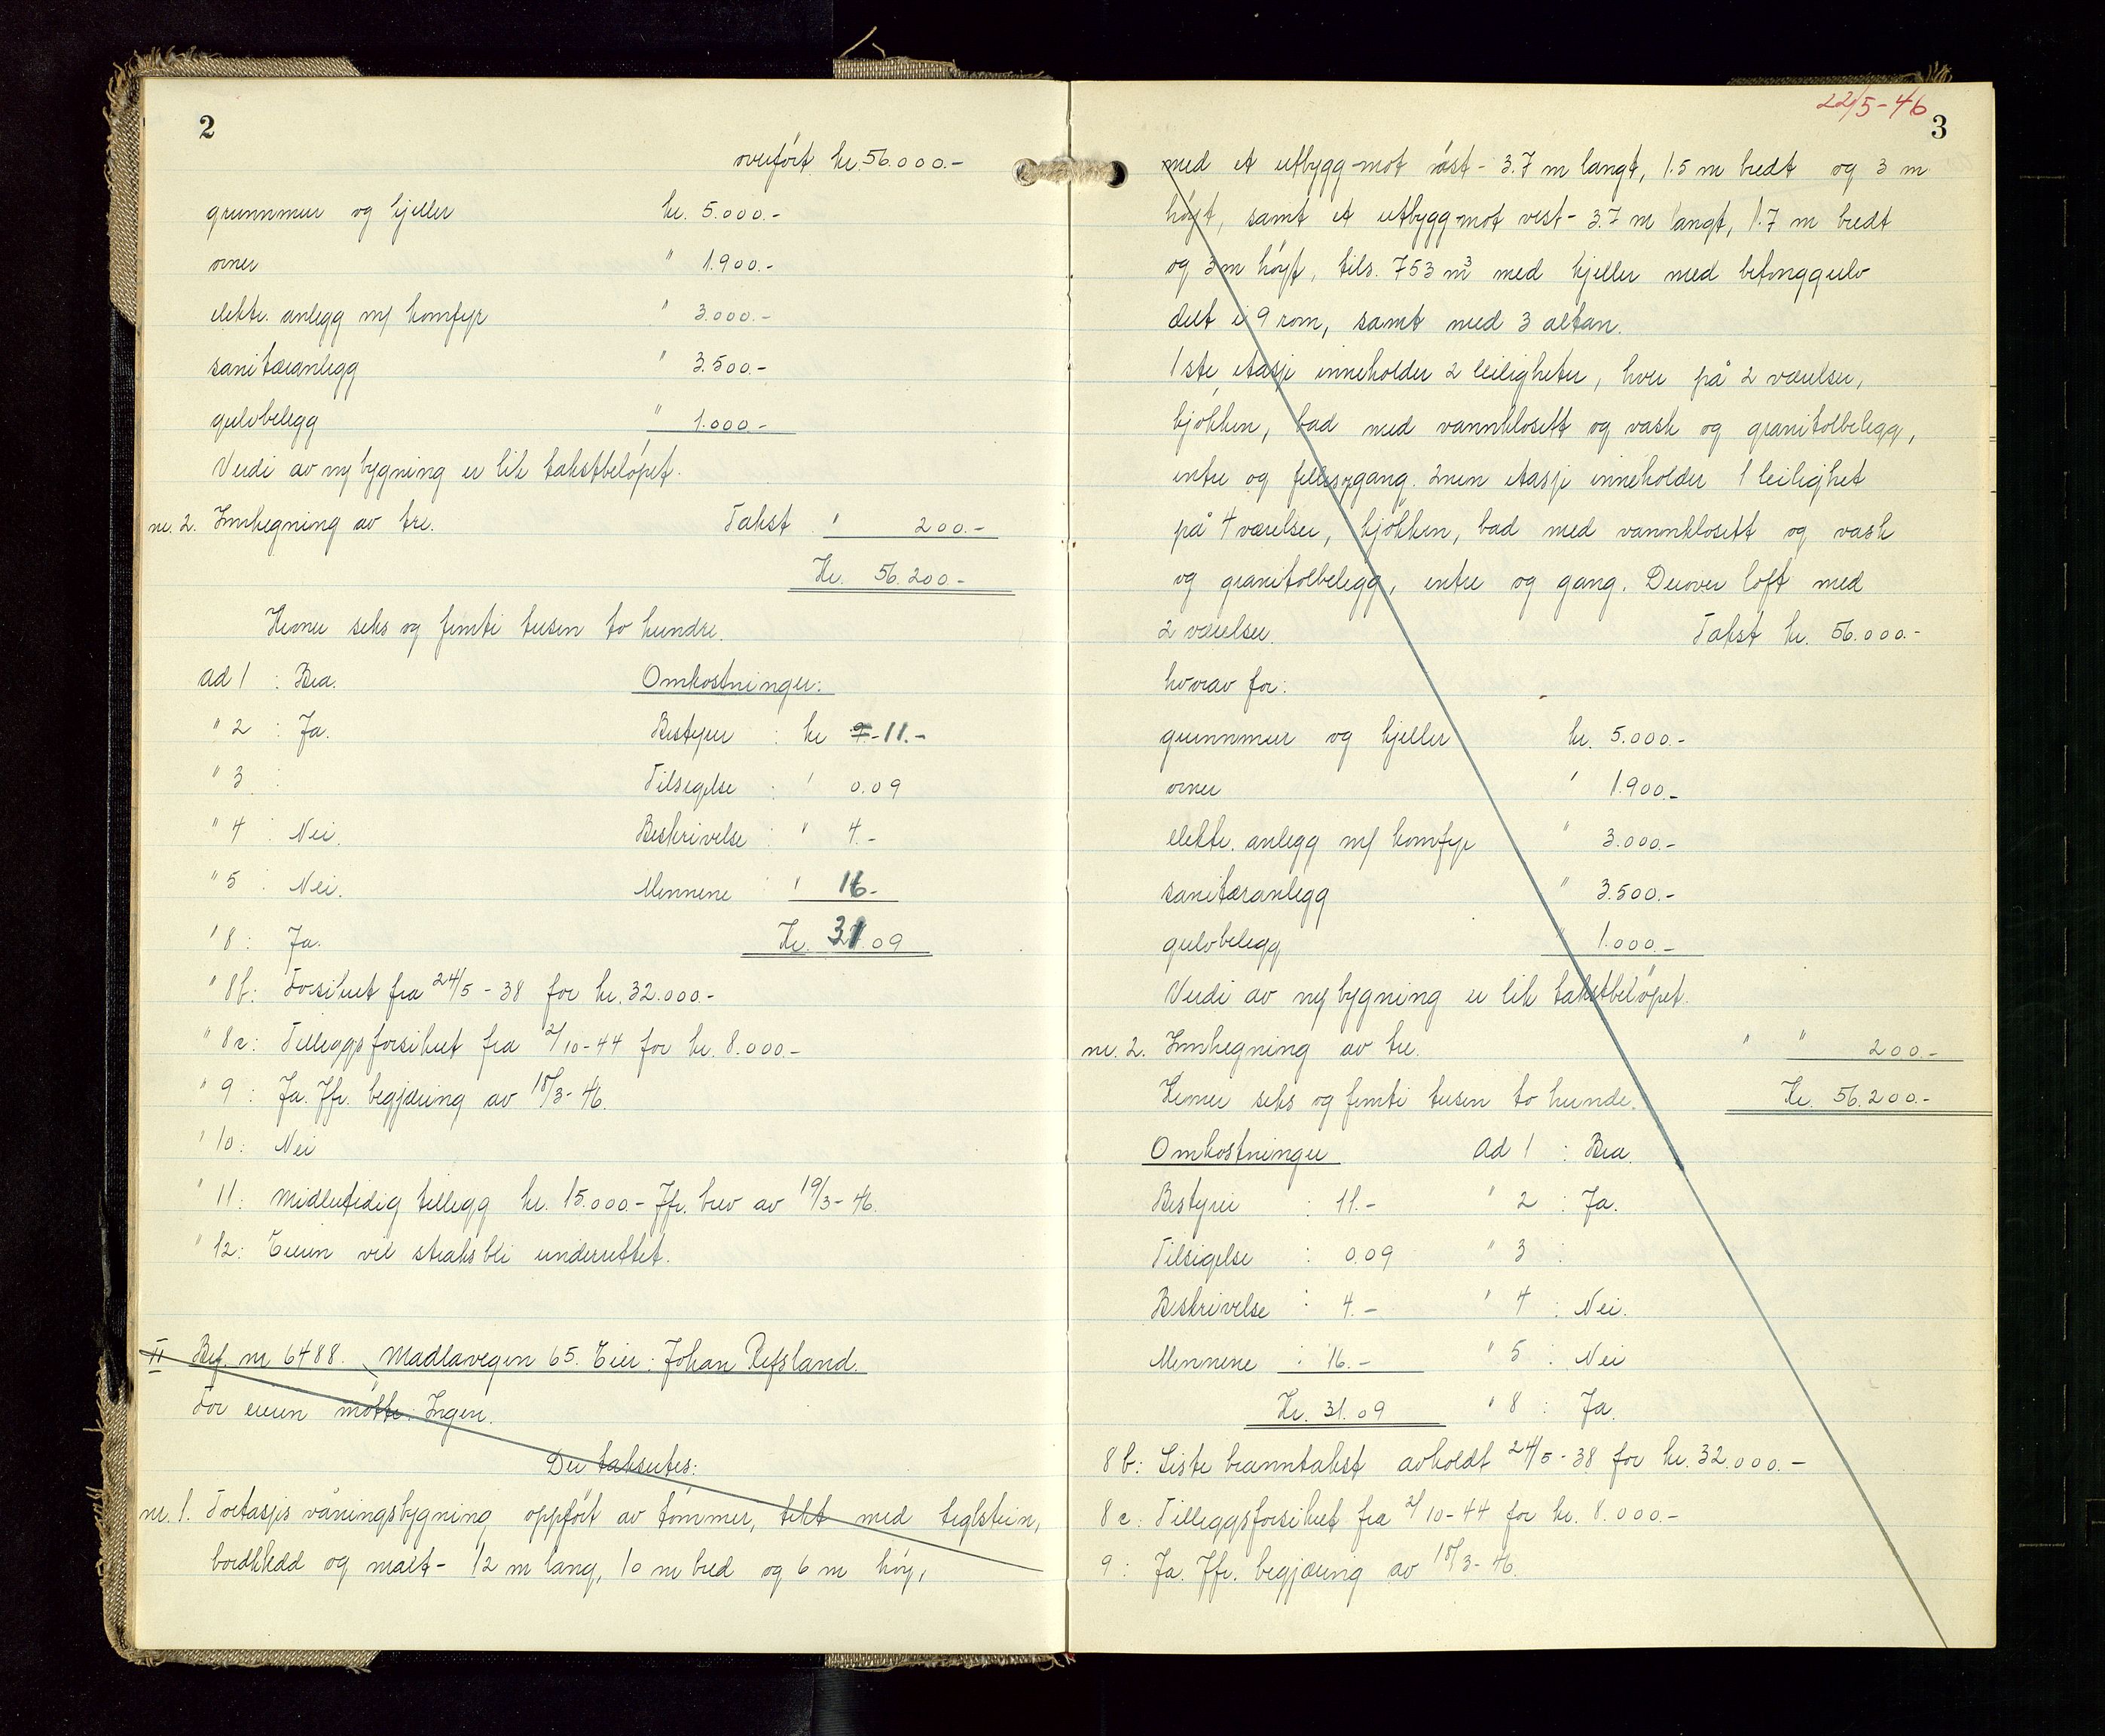 2
overført kr. 56.000.-
grunnmur og kjeller kr. 5.000.-
ovner " 1.900.-
elektr. anlegg m/ komfyr " 3.000.-
sanitæranlegg " 3.500.-
gulvbelegg " 1.000.-
Verdi av ny bygning er lik takstbeløpet.
nr. 2. Innhegning av tre. Takst " 200.-
Kr. 56.200.-
Kroner seks og femti tusen to hundre.
ad 1 : Bra. Omkostninger:
" 2 : Ja. Bestyrer : kr 11.-
" 3 : Tilsigelse : " 0.09
" 4 : Nei. Beskrivelse : " 4.-
" 5 : Nei. Mennene " 16.-
" 8 : Ja. Kr. 31.09
" 8b: Forsikret fra 24/5 - 38 for kr. 32.000.-
" 8c: Tilleggsforsikret fra 2/10-44 for kr. 8.000.-
" 9 : Ja. Jfr. begjæring av 18/3-46.
" 10: Nei
" 11: Midlertidig tillegg kr. 15.000.- Jfr. brev av 19/3-46.
" 12: Eieren vil straks bli underrettet.
II Bef. nr 6488. Madlavegen 65. Eier: Johan Refsland.
For eieren møtte: Ingen.
Der taksertes:
nr. 1. Toetasjes våningsbygning oppført av tømmer, tekt med teglstein,
bordkledd og malt - 12 m lang, 10 m bred og 6 m høy,
22/5-46
3
med et utbygg mot øst - 3.7 m langt, 1.5 m bredt og 3 m
høyt, samt et utbygg mot vest - 3.7 m langt, 1.7 m bredt
og 3 m høyt, tils. 753 m³ med kjeller med betonggulv
delt i 9 rom, samt med 3 altan.
1ste etasje inneholder 2 leiligheter, hver på 2 værelser,
kjøkken, bad med vannklosett og vask og granitolbelegg,
entre og fellesgang. 2nen etasje inneholder 1 leilighet
på 4 værelser, kjøkken, bad med vannklosett og vask
og granitolbelegg, entre og gang. Derover loft med
2 værelser. Takst kr. 56.000.-
hvorav for:
grunnmur og kjeller kr. 5.000.-
ovner " 1.900.-
elektr. anlegg m/ komfyr " 3.000.-
sanitæranlegg " 3.500.-
gulvbelegg " 1.000.-
Verdi av ny bygning er lik takstbeløpet.
nr. 2. Innhegning av tre. " " 200.-
Kroner seks og femti tusen to hundre. Kr. 56.200.-
Omkostninger Ad 1 : Bra.
Bestyrer : 11.- " 2 : Ja.
Tilsigelse : 0.09 " 3 :
Beskrivelse : 4.- " 4 : Nei.
Mennene : 16.- " 5 : Nei
Kr. 31.09 " 8 : Ja.
8b: Siste branntakst avholdt 24/5-38 for kr. 32.000.-
8c: Tilleggsforsikret fra 2/10-44 for kr. 8.000.-
9 : Ja. Jfr. begjæring av 18/3-46.